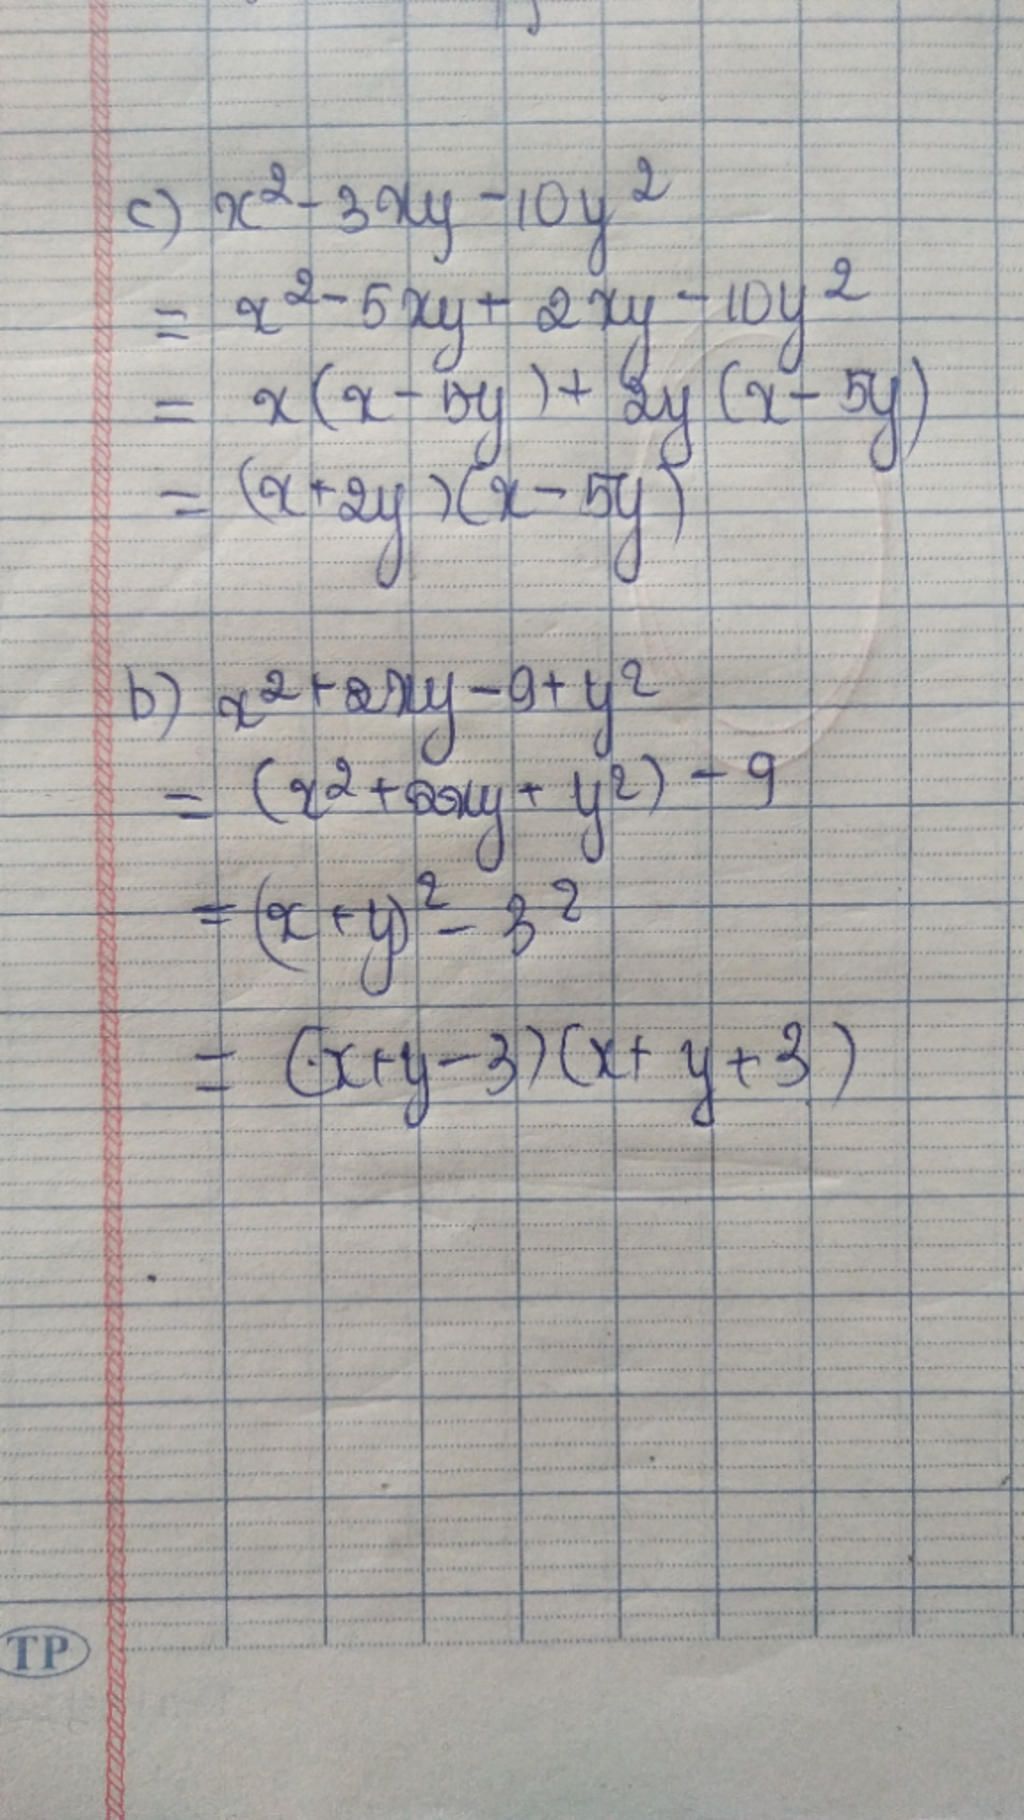 c) x² - 3xy - 10y²
= x² - 5xy + 2xy - 10y²
= x(x - 5y) + 2y(x - 5y)
= (x + 2y)(x - 5y)
b) x² + 2xy - 9 + y²
= (x² + 2xy + y²) - 9
= (x + y)² - 3²
= (x + y - 3)(x + y + 3)
TP